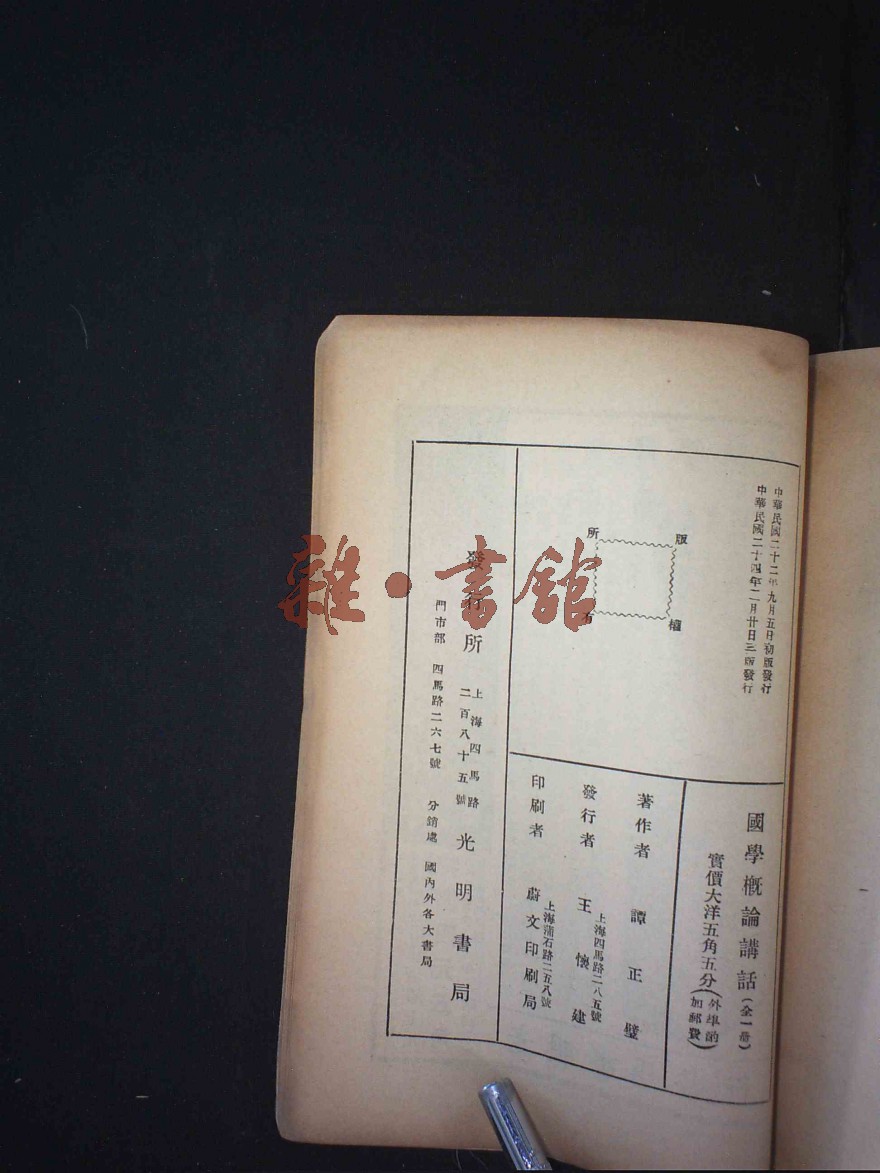 中華民國二十二年九月五日初版發行
中華民國二十四年二月廿日三版發行
版權
所有
國學概論講話(全一冊)
實價大洋五角五分(外埠酌加郵費)
著作者 譚正璧
發行者 王懷建
上海四馬路二八五號
印刷者 蔚文印刷局
上海蒲石路二五八號
發行所 上海四馬路二百八十五號 光明書局
門市部 四馬路二六七號 分銷處 國內外各大書局
雜·書館